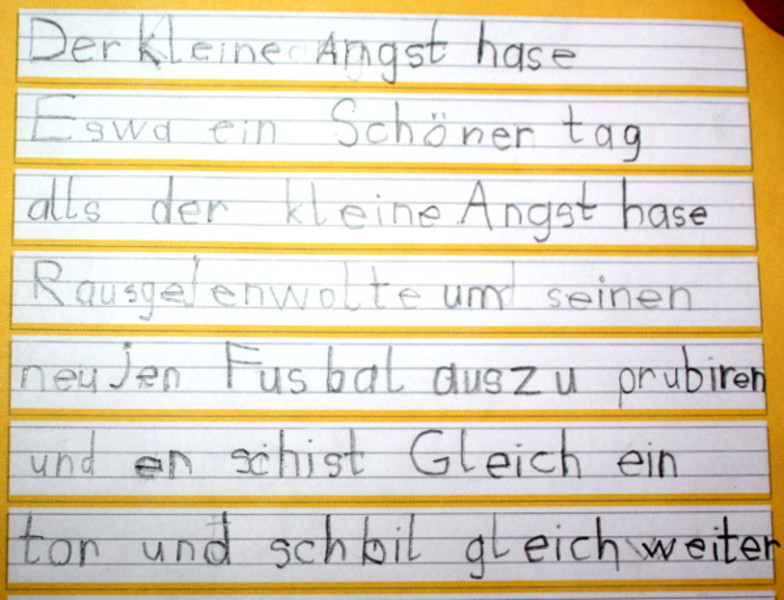 Der kleine Angst hase
Eswa ein Schöner tag
alls der kleine Angst hase
Rausgelenwolte und seinen
neujen Fusbal auszu prubiren
und en schist Gleich ein
tor und schbil gleich weiter